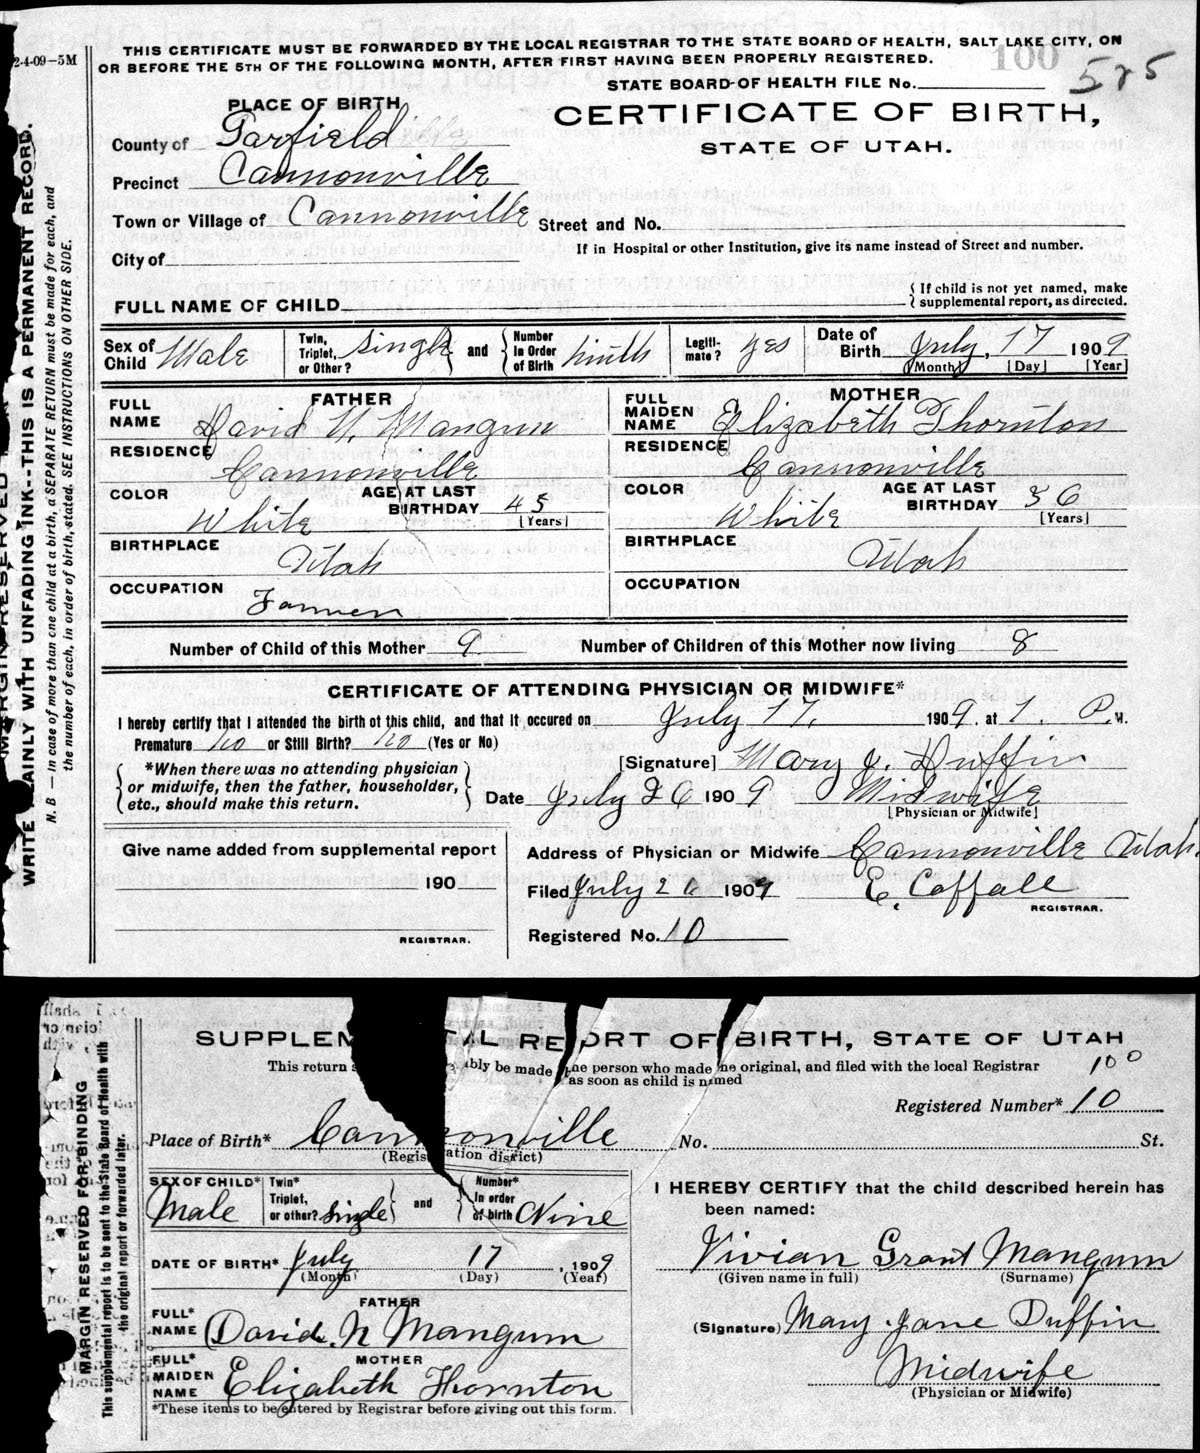 2-4-09-5M
THIS CERTIFICATE MUST BE FORWARDED BY THE LOCAL REGISTRAR TO THE STATE BOARD OF HEALTH, SALT LAKE CITY, ON
OR BEFORE THE 5TH OF THE FOLLOWING MONTH, AFTER FIRST HAVING BEEN PROPERLY REGISTERED.
100
525
STATE BOARD OF HEALTH FILE No.
PLACE OF BIRTH
CERTIFICATE OF BIRTH,
STATE OF UTAH.
County of Garfield
Precinct Cannonville
Town or Village of Cannonville Street and No.
If in Hospital or other Institution, give its name instead of Street and number.
City of
FULL NAME OF CHILD { If child is not yet named, make
supplemental report, as directed.
Sex of Child Male Twin, Triplet, or Other? Single and Number in Order of Birth ninth Legiti-mate? yes Date of Birth July, 17 1909
(Month) (Day) (Year)
FATHER
FULL NAME David N. Mangum
RESIDENCE Cannonville
COLOR White AGE AT LAST BIRTHDAY 45 (Years)
BIRTHPLACE Utah
OCCUPATION Farmer
MOTHER
FULL MAIDEN NAME Elizabeth Thornton
RESIDENCE Cannonville
COLOR White AGE AT LAST BIRTHDAY 36 (Years)
BIRTHPLACE Utah
OCCUPATION
Number of Child of this Mother 9 Number of Children of this Mother now living 8
CERTIFICATE OF ATTENDING PHYSICIAN OR MIDWIFE*
I hereby certify that I attended the birth of this child, and that it occured on July 17, 1909. at 1. P. M.
Premature no or Still Birth? no (Yes or No)
*When there was no attending physician
or midwife, then the father, householder,
etc., should make this return.
[Signature] Mary J. Duffin
Date July 26 1909 Midwife
[Physician or Midwife]
Give name added from supplemental report
190
REGISTRAR.
Address of Physician or Midwife Cannonville Utah.
Filed July 26 1909 E. Coffall
REGISTRAR.
Registered No. 10
WRITE PLAINLY WITH UNFADING INK--THIS IS A PERMANENT RECORD.
N. B — In case of more than one child at a birth, a SEPARATE RETURN must be made for each, and
the number of each, in order of birth, stated. SEE INSTRUCTIONS ON OTHER SIDE.
SUPPLEM TAL REPORT OF BIRTH, STATE OF UTAH
This return ably be made he person who made he original, and filed with the local Registrar
as soon as child is named
100
Registered Number* 10
Place of Birth* Cannonville No. St.
(Registration district)
SEX OF CHILD* Male Twin* Triplet, or other? Single and Number* in order of birth Nine
DATE OF BIRTH* July 17, 1909
(Month) (Day) (Year)
FATHER
FULL* NAME David. N Mangum
MOTHER
FULL* MAIDEN NAME Elizabeth Thornton
*These items to be entered by Registrar before giving out this form.
I HEREBY CERTIFY that the child described herein has
been named:
Vivian Grant Mangum
(Given name in full) (Surname)
(Signature) Mary Jane Duffin
Midwife
(Physician or Midwife)
MARGIN RESERVED FOR BINDING
This supplemental report is to be sent to the State Board of Health with
the original report or forwarded later.